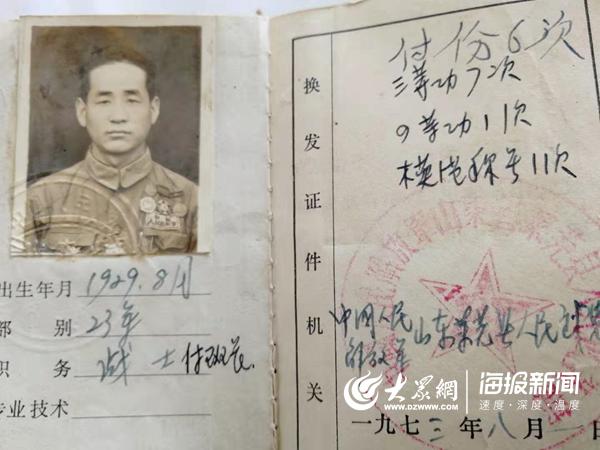 出生年月 1929.8月
部别 23军
职务 战士付班长
专业技术
付份6次
三等功7次
四等功11次
模范称号11次
换发证件机关
中国人民解放军山东莱芜县人民武装
一九七三年八月一日
大众网
www.dzwww.com
海报新闻
速度·深度·温度